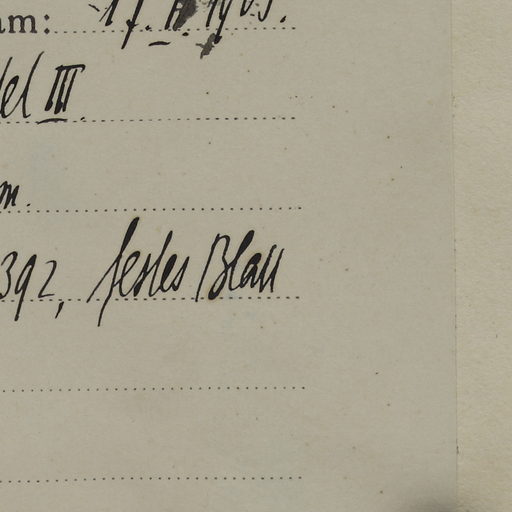 am: 17. II. 1905.
del III.
m.
392, festes Blatt